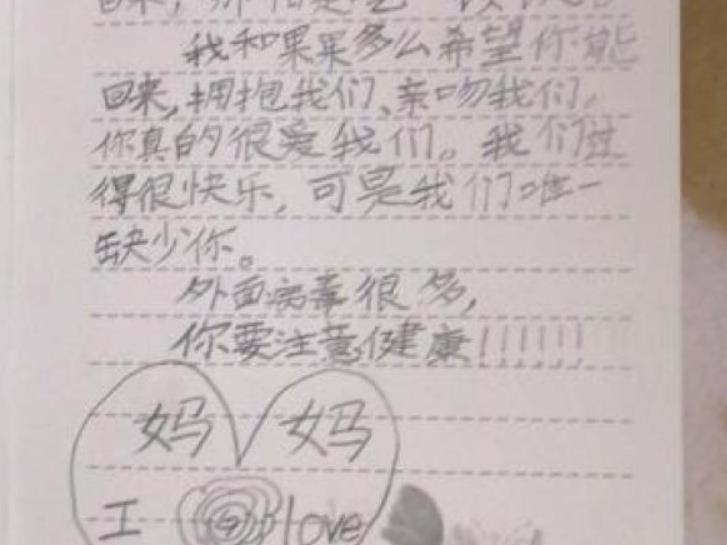 我和果果多么希望你能
回来,拥抱我们、亲吻我们。
你真的很爱我们。我们过
得很快乐,可是我们唯一
缺少你。
外面病毒很多,
你要注意健康!!!!!!
妈 妈
I love